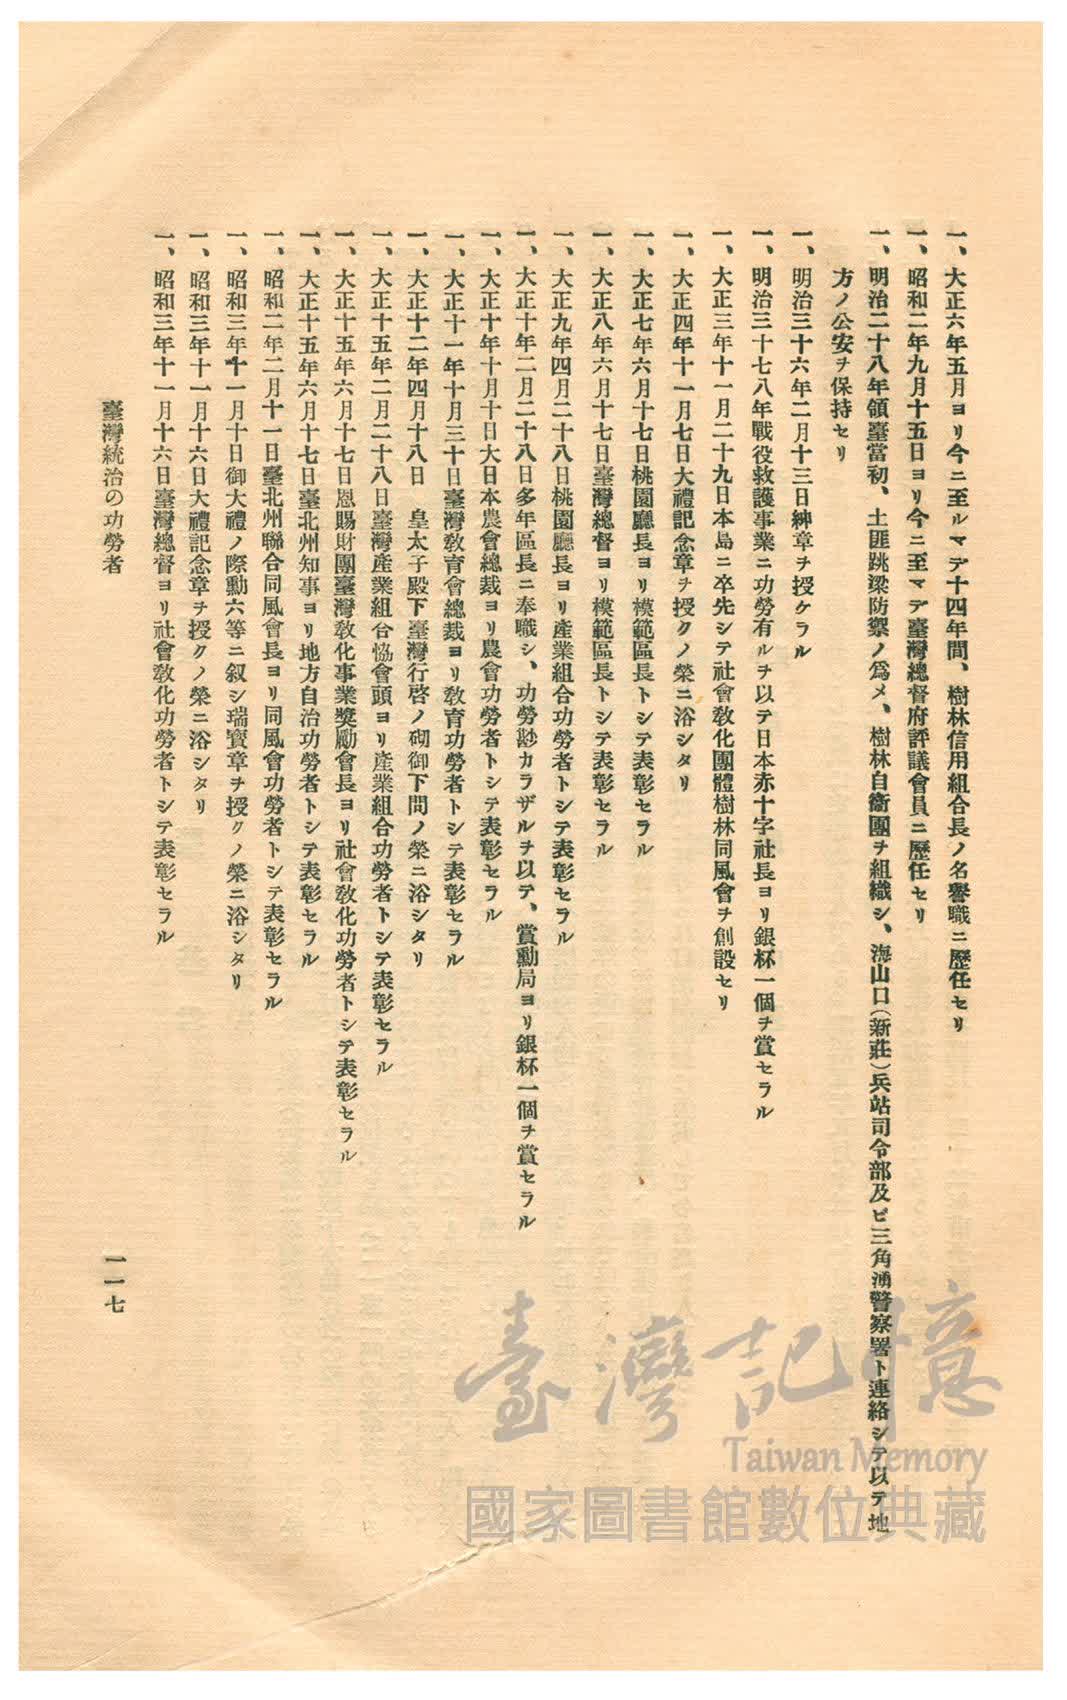 一、大正六年五月ヨリ今ニ至ルマデ十四年間、樹林信用組合長ノ名譽職ニ歷任セリ
一、昭和二年九月十五日ヨリ今ニ至マデ臺灣總督府評議會員ニ歷任セリ
一、明治二十八年領臺當初、土匪跳梁防禦ノ爲メ、樹林自衞團ヲ組織シ、海山口(新莊)兵站司令部及ビ三角湧警察署ト連絡シテ以テ地
方ノ公安ヲ保持セリ
一、明治三十六年二月十三日紳章ヲ授ケラル
一、明治三十七八年戰役救護事業ニ功勞有ルヲ以テ日本赤十字社長ヨリ銀杯一個ヲ賞セラル
一、大正三年十一月二十九日本島ニ卒先シテ社會敎化團體樹林同風會ヲ創設セリ
一、大正四年十一月七日大禮記念章ヲ授クノ榮ニ浴シタリ
一、大正七年六月十七日桃園廳長ヨリ模範區長トシテ表彰セラル
一、大正八年六月十七日臺灣總督ヨリ模範區長トシテ表彰セラル
一、大正九年四月二十八日桃園廳長ヨリ產業組合功勞者トシテ表彰セラル
一、大正十年二月二十八日多年區長ニ奉職シ、功勞尠カラザルヲ以テ、賞勳局ヨリ銀杯一個ヲ賞セラル
一、大正十年十月十日大日本農會總裁ヨリ農會功勞者トシテ表彰セラル
一、大正十一年十月三十日臺灣敎育會總裁ヨリ敎育功勞者トシテ表彰セラル
一、大正十二年四月十八日　皇太子殿下臺灣行啓ノ砌御下問ノ榮ニ浴シタリ
一、大正十五年二月二十八日臺灣產業組合協會頭ヨリ產業組合功勞者トシテ表彰セラル
一、大正十五年六月十七日恩賜財團臺灣敎化事業獎勵會長ヨリ社會敎化功勞者トシテ表彰セラル
一、大正十五年六月十七日臺北州知事ヨリ地方自治功勞者トシテ表彰セラル
一、昭和二年二月十一日臺北州聯合同風會長ヨリ同風會功勞者トシテ表彰セラル
一、昭和三年十一月十日御大禮ノ際勳六等ニ叙シ瑞寶章ヲ授クノ榮ニ浴シタリ
一、昭和三年十一月十六日大禮記念章ヲ授クノ榮ニ浴シタリ
一、昭和三年十一月十六日臺灣總督ヨリ社會敎化功勞者トシテ表彰セラル
臺灣統治の功勞者
一一七
臺灣記憶
Taiwan Memory
國家圖書館數位典藏